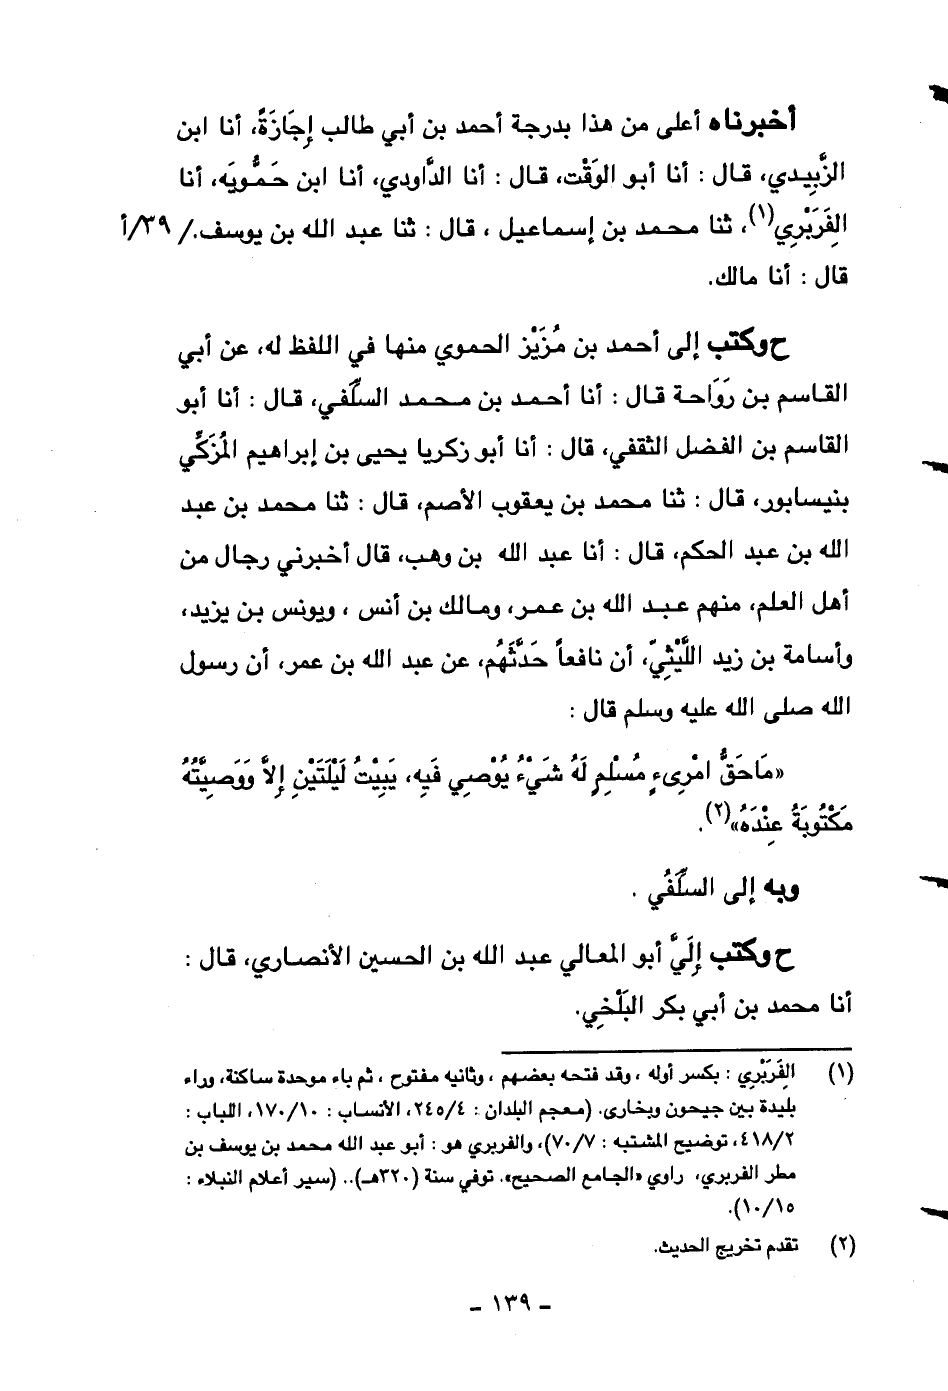 أخبرناه أعلى من هذا بدرجة أحمد بن أبي طالب إِجَازَةً، أنا ابن
الزَّبِيدي، قال : أنا أبو الوَقْت، قال : أنا الدَّاودي، أنا ابن حَمُّويَه، أنا
الفِرَبْرِي(١)، ثنا محمد بن إسماعيل ، قال : ثنا عبد الله بن يوسف./ ٣٩/أ
قال : أنا مالك.
ح وكتب إلى أحمد بن مُزَيْز الحموي منها في اللفظ له، عن أبي
القاسم بن رَوَاحة قال : أنا أحمد بن محمد السلَفي، قال : أنا أبو
القاسم بن الفضل الثقفي، قال : أنا أبو زكريا يحيى بن إبراهيم المُزَكِّي
بنيسابور، قال : ثنا محمد بن يعقوب الأصم، قال : ثنا محمد بن عبد
الله بن عبد الحكم، قال : أنا عبد الله بن وهب، قال أخبرني رجال من
أهل العلم، منهم عبد الله بن عمر، ومالك بن أنس ، ويونس بن يزيد،
وأسامة بن زيد اللَّيْثِيّ، أن نافعاً حَدَّثَهُم، عن عبد الله بن عمر، أن رسول
الله صلى الله عليه وسلم قال :
«مَاحَقُّ امْرِىءٍ مُسْلِمٍ لَهُ شَيْءُ يُوْصِي فَيِهِ، يَبِيْتُ لَيْلَتَيْنِ إِلاَّ وَوَصِيَّتُهُ
مَكْتُوبَةُ عِنْدَهُ»(٢).
وبه إلى السلَفُي .
ح وكتب إِلَيَّ أبو المعالي عبد الله بن الحسين الأنصاري، قال :
أنا محمد بن أبي بكر البَلْخِي.
(١) الفَرَبْرِي : بكسر أوله ، وقد فتحه بعضهم ، وثانيه مفتوح ، ثم باء موحدة ساكنة، وراء
بليدة بين جيحون وبخارى. (معجم البلدان : ٢٤٥/٤، الأنساب : ١٧٠/١٠، اللباب :
٤١٨/٢، توضيح المشتبه : ٧٠/٧)، والفربري هو : أبو عبد الله محمد بن يوسف بن
مطر الفربري، راوي «الجامع الصحيح». توفي سنة (٣٢٠هـ).. (سير أعلام النبلاء :
١٠/١٥).
(٢) تقدم تخريج الحديث.
- ١٣٩ -